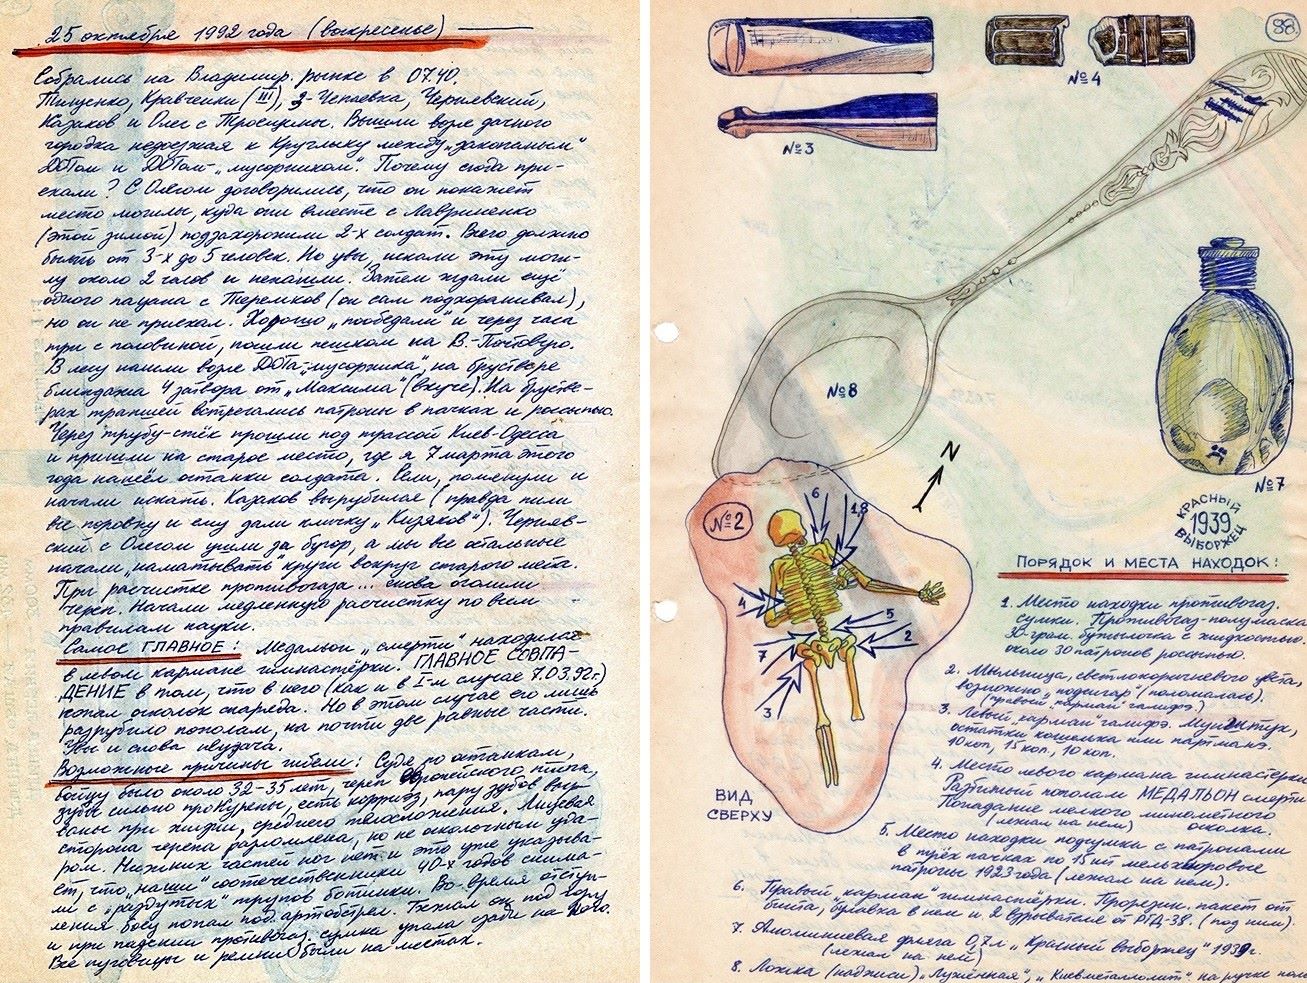 25 октября 1992 года (воскресенье)
Собрались на Владимир. рынке в 07.40.
Кравченки (III), Чернявский,
Казаков и Олег с Троещины. Вышли возле дачного
городка недоезжая к Круглыку между „закопаным"
ДОТом и ДОТом-„мусорником". Почему сюда при-
ехали? С Олегом договорились, что он покажет
место могилы, куда они вместе с Лавриненко
(этой зимой) подзахоронили 2-х солдат. Всего должно
быть от 3-х до 5 человек. Но увы, искали эту моги-
лу около 2 часов и ненашли. Затем ждали ещё
одного пацана с Теремков (он сам подхоранивал),
но он не приехал. Хорошо „пообедали" и через часа
три с половиной, пошли пешком на В.-Почтовую.
В лесу нашли возле ДОТа-„мусорника", на бруствере
блиндажа 4 затвора от „Максима" (вкуче). На бруств-
рах траншей встречались патроны в пачках и россыпью.
Через трубу-стёк прошли под трассой Киев-Одесса
и пришли на старое место, где я 7 марта этого
года нашёл останки солдата. Сели, помянули и
начали искать. Казаков вырубился (правда пили
все поровну и ему дали кличку „Кизяков"). Черняв-
ский с Олегом ушли за бугор, а мы все остальные
начали „наматывать" круги вокруг старого места.
При расчистке противогаза... снова оголили
череп. Начали медленную расчистку по всем
правилам науки.
Самое ГЛАВНОЕ: Медальон „смерти" находился
в левом кармане гимнастёрки. ГЛАВНОЕ СОВПА-
ДЕНИЕ в том, что в него (как и в I-м случае 7.03.92г.)
попал осколок снаряда. Но в этом случае его лишь
разрубило пополам, на почти две равные части.
Увы и снова неудача.
Возможные причины гибели: Судя по останкам,
бойцу было около 32-35 лет, череп европейского типа,
зубы сильно прокурены, есть кариэз, пару зубов вып-
валы при жизни, среднего телосложения. Лицевая
сторона черепа разломлена, но не осколочным уда-
ром. Нижних частей ног нет и это уже указыва-
ет, что „наши" соотечественники 40-х годов снима-
ли с „раздутых" трупов ботинки. Во время отступ-
ления боец попал под артобстрел. Бежал он под гору
и при падении противогаз. сумка упала сзади на него.
Все пуговицы и ремни были на местах.
88.
№3
№4
№8
№7
N
КРАСНЫЙ
1939
ВЫБОРЖЕЦ
№2
6
1,8
4
5
2
7
3
ВИД
СВЕРХУ
ПОРЯДОК И МЕСТА НАХОДОК:
1. Место находки противогаз.
сумки. Противогаз-полумаска
30-грам. бутылочка с жидкостью.
около 30 патронов россыпью.
2. Мыльница, светлокоричневого цвета,
возможно „подсигар" (поломалась).
(„правый карман" галифэ.)
3. Левый „карман" галифэ. Мундштук,
остатки кошелька или партманэ.
10 коп, 15 коп., 10 коп.
4. Место левого кармана гимнастёрки
Разбитый пополам МЕДАЛЬОН смерти
Попадание мелкого минометного
осколка.
(лежал на нём)
5. Место находки подсумка с патронами
в трёх пачках по 15 шт мельхиоровые
патроны 1923 года (лежал на нём).
6. Правый „карман" гимнастёрки. Прорезин. пакет от
бинта, булавка в нем и 2 взрывателя от РГД-38. (под ним).
7. Алюминиевая фляга 0,7л „Красный выборжец" 1939г.
(лежал на нём)
8. Ложка (надписи) „Лужённая", „Киевметаллолит" на ручке